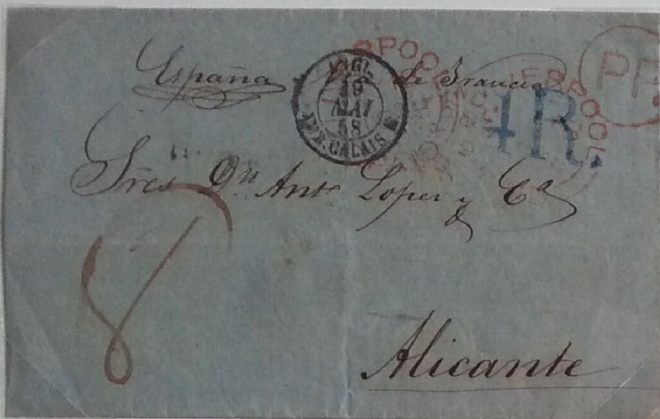 España Via de Francia
ANGL.
19
MAI
58
AMB. CALAIS
LIVERPOOL
LIVERPOOL
PP.
4R.
Sres Dn Anto Lopez y Ca
8
Alicante